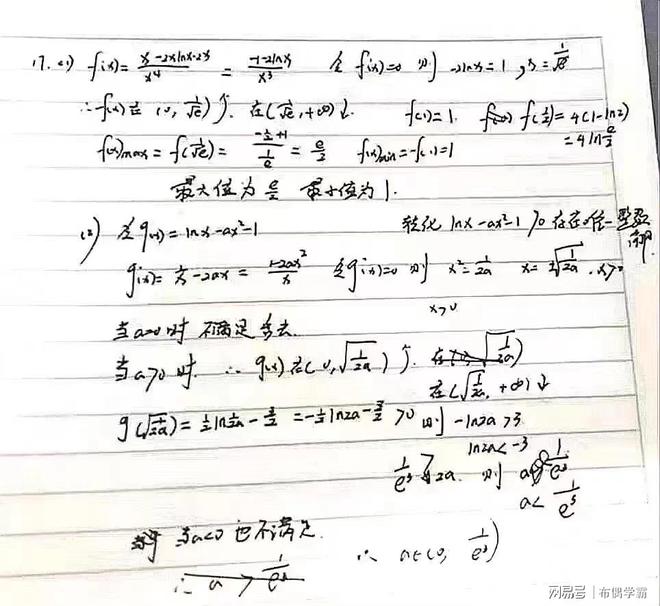 17. (1) f'(x)= (x-2xlnx-2x)/x⁴ = (-1-2lnx)/x³ 令 f'(x)=0 则 -2lnx=1, x=1/√e
∴f(x)在(0, 1/√e)↑. 在(1/√e, +∞)↓. f(1)=1. f(1/2)=4(1-ln2)
=4ln e/2
f(x)max=f(1/√e)= (-1/2+1)/(1/e) = e/2 f(x)min=f(1)=1
最大值为 e/2 最小值为 1.
(2) 令g(x)=lnx-ax²-1 转化 lnx-ax²-1>0存在唯一整数
解
g'(x)=1/x-2ax= (1-2ax²)/x 令g'(x)=0 则 x²=1/2a x=±√(1/2a). x>0
x>0
当a=0时 不满足舍去.
当a>0时. ∴ g(x)在(0, √(1/2a))↑.
在(√(1/2a), +∞)↓
g(√(1/2a))=1/2 ln 1/2a - 3/2 = -1/2 ln2a - 3/2 >0 则 -ln2a>3
ln2a<-3
1/e³ > 2a. 则
a< 1/e³
当a<0 也不满足.
∴ a∈(0, 1/e³)
网易号 | 布偶学霸